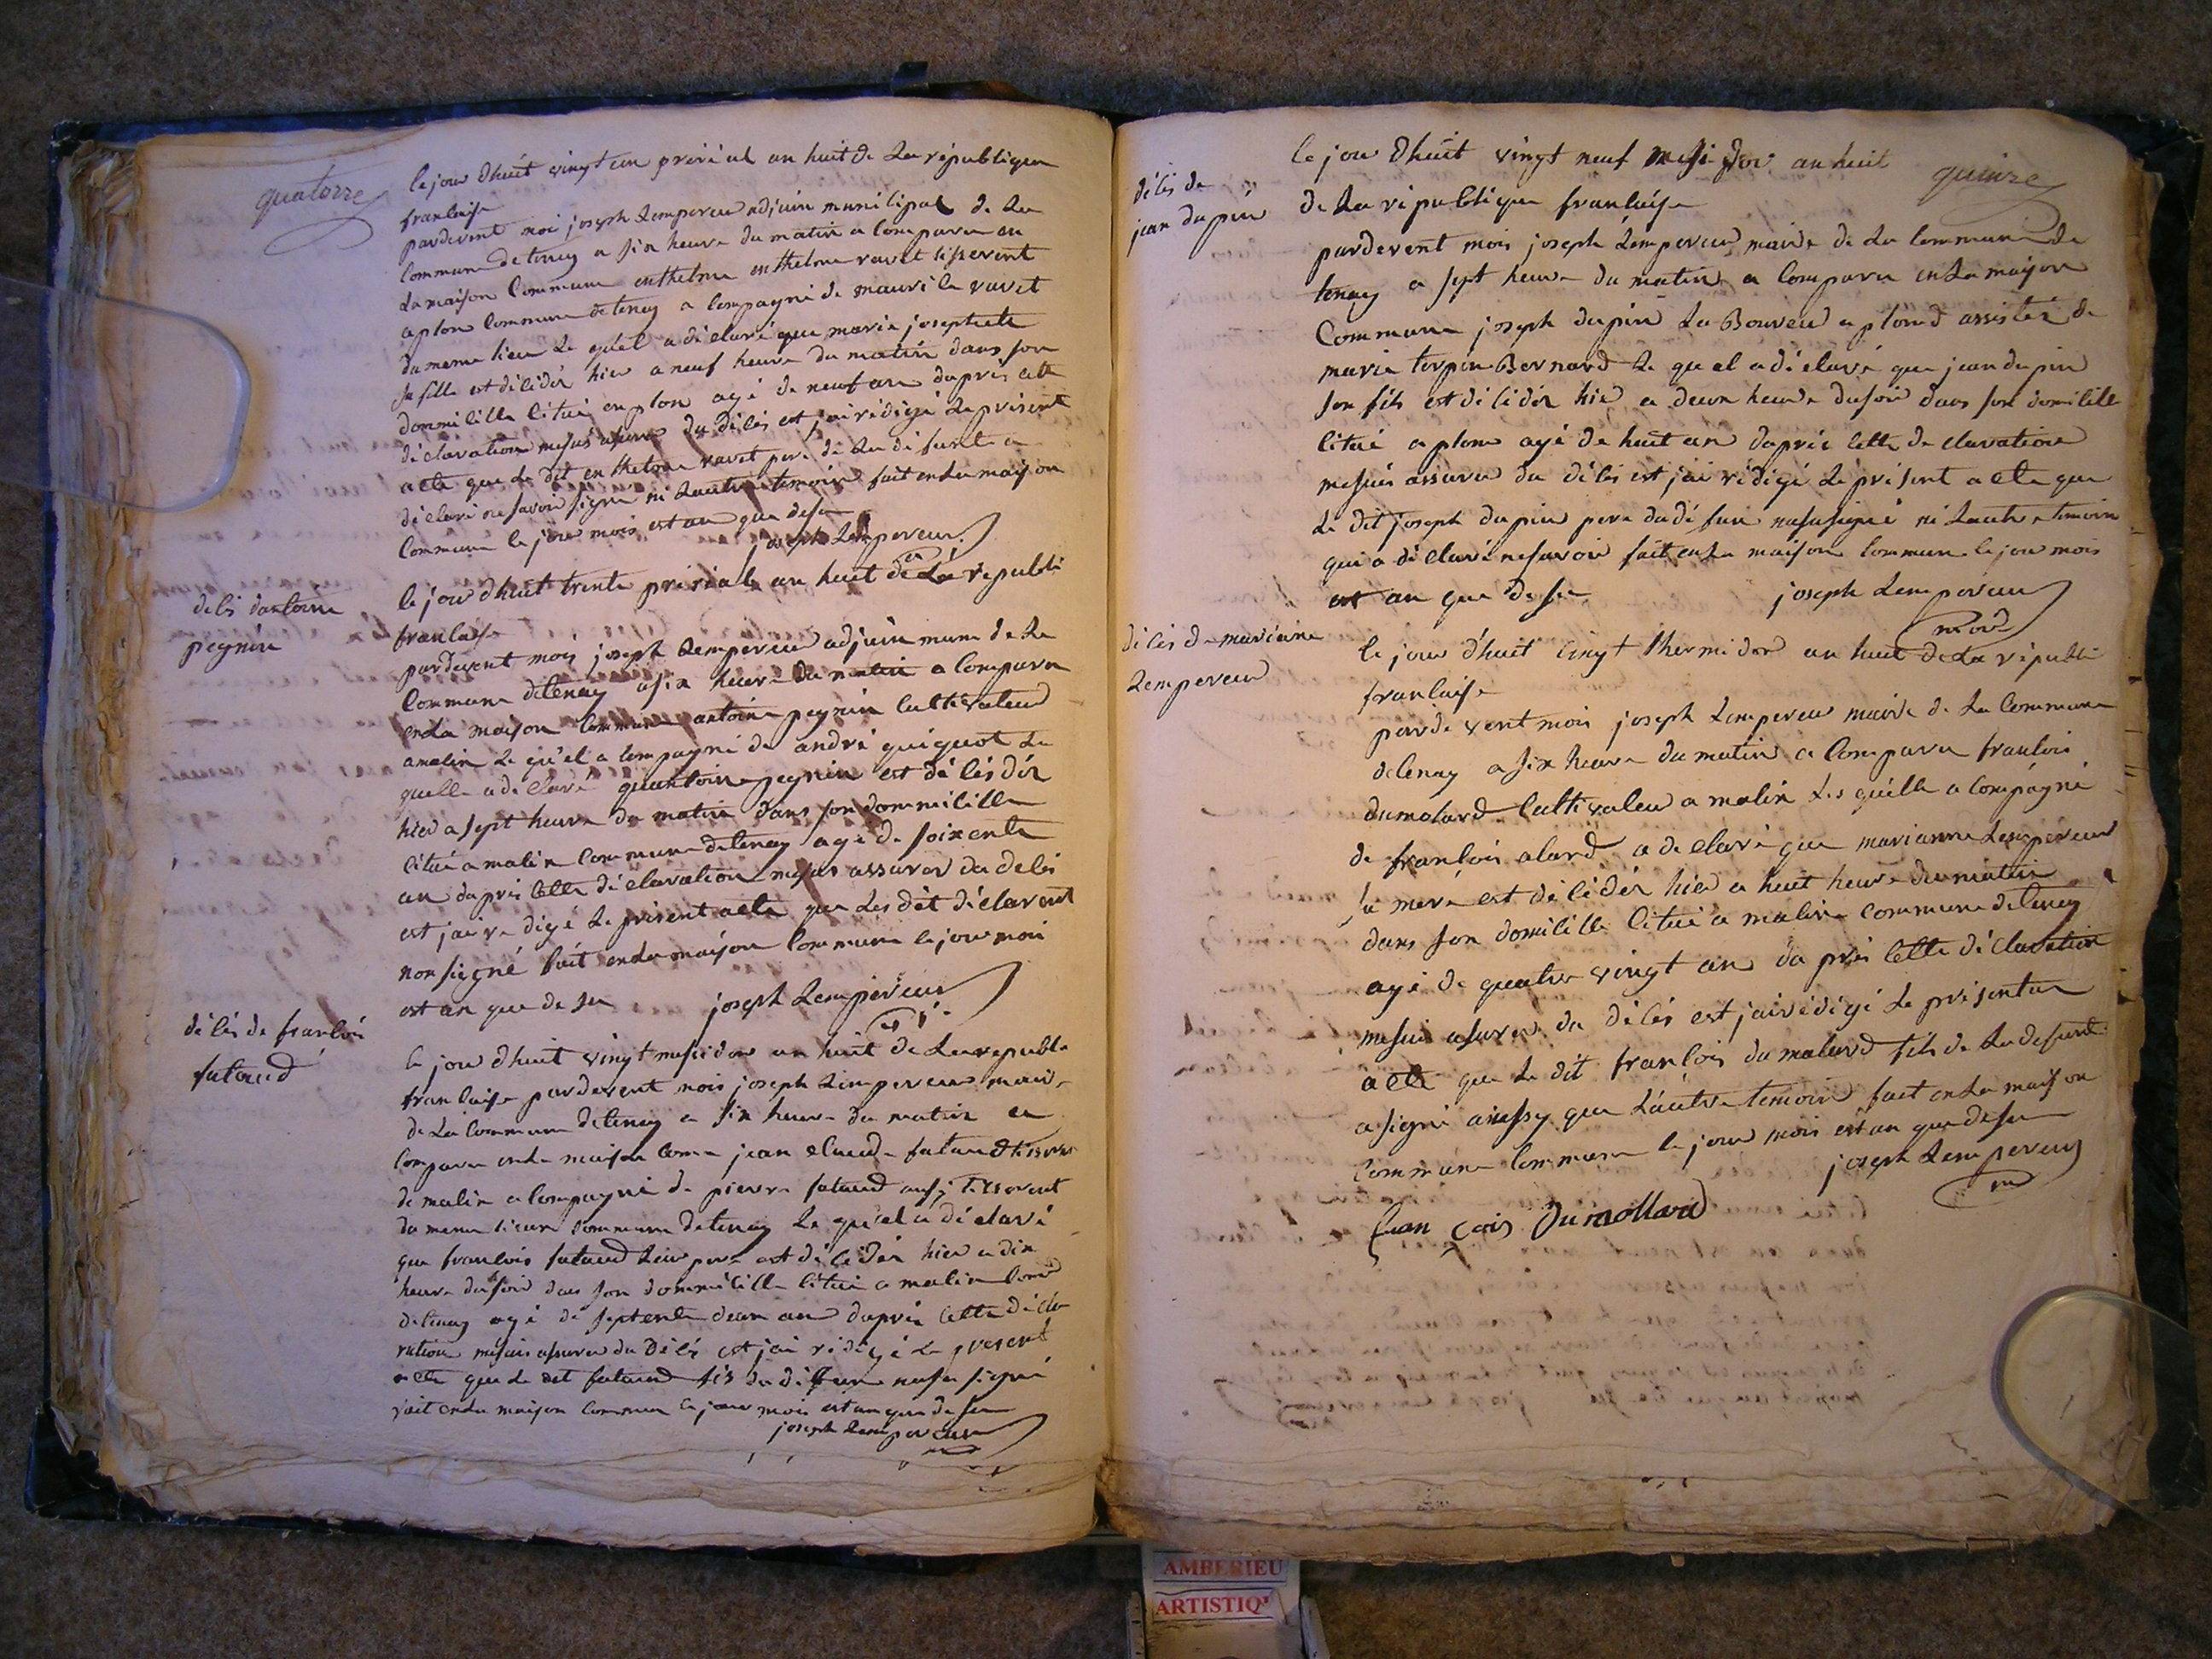 quatorze
le jour dhuit vingt un prerial an huit de La républiqu
franlaise
pardevent moi joseph Lempereur adjuin municipal de La
Commune detenay a six heure du matin a Comparu en
La maison Commune enthelme enthelme ravet tisserent
aplon Commune detenay a Compagné de mauri le ravet
du meme lieu Le quel a déclaré que marie josephete
sa fille est décédér hier a neuf heure du matin dans son
dommicille citué enplon agé de neuf an dapres cette
déclaration mesuis assure du décés est jai rédigé Le présent
acte que Le dit enthelme ravet pere de La défunte a
déclaré ne savoir signé ni Lautre temoin fait en La maison
Commune le jour mois est an que desu
joseph Lempereur
délés dantoine
pegnin
le jour dhuit trente prerial an huit de La républi
franlaise
pardevent mois joseph Lempereur adjuin mune de La
Commune detenay a six heure du matin a Comparu
en La maison Commune antoine pegnin Cultivateur
amalin Le qu'el a Compagné de andré guiguot Le
quelle a déclaré quantoine pegnin est décésdér
hier a sept heure du matin dans son dommicille
citué a malin Commune detenay agé de soixente
an dapres Cette déclaration mesuis assurer du decés
est jai redigé Le présent acte que Les dit déclarent
non signé fait en La maison Commune le jour mois
est an que de su joseph Lempereur
délés de franlois
futaud
le jour dhuit vingt messidor an huit de La republi
franlaise pardevent mois joseph Lempereur maire
de La Commune detenay a six heure du matin a
Comparu en La maison Come jean claude futaud tisserent
de malin a Compagné de pierre futaud ausy tisserent
du meme lieu Commune detenay Le qu'el a déclaré
que franlois futaud Leur pere est décédér hier a dix
heure du soir dans son dommicille citué a malin Come
detenay agé de septente deux an dapres Cette décla
ration mesuis assurer du décés est jai rédigé Le present
acte que Le dit futaud fis du défun nasu signé
fait en La maison Commun le jour mois est an que de su
joseph Lempereur
quinze
délés de
jean dupin
le jour dhuit vingt neuf messidor an huit
de La république franlaise
pardevent mois joseph Lempereur maire de La Commune de
tenay a sept heure du matin a Comparu en La maison
Commune joseph dupin La Boureur a plond assistér de
marie terpen Bernard Le qu el a déclaré que jean dupin
son fils est décédér hier a deux heure du soir dans son domicille
citué a plone agé de huit an dapres cette declaration
mesuis assurer du décés est jai rédigé Le présent acte que
Le dit joseph dupin pere du défun nasu signé ni Lautre temoin
qui a déclaré ne savoir fait en La maison Commune le jour mois
est an que de su joseph Lempereur
délés de mariane
Lempereur
le jour dhuit vingt thermidor an huit de La républi
franlaise
pardevent mois joseph Lempereur maire de La Commune
detenay a six heure du matin a Comparu franlois
dumolard Cultivateur a malin Les quelle a Compagné
de franlois alard a declaré que marianne Lempereur
sa mere est décédér hier a huit heure du matin
dans son domicille citué a malin Commune detenay
agé de quatre vingt an da prés Cette déclaration
mesuis assurer du décés est jai rédigé Le présent
acte que Le dit franlois dumolard fils de La defunte
a signé ainssy que Lautre temoin fait en La maison
Commune Commune le jour mois est an que de su
joseph Lempereur
fran çois Dumollard
AMBERIEU
ARTISTIQ'